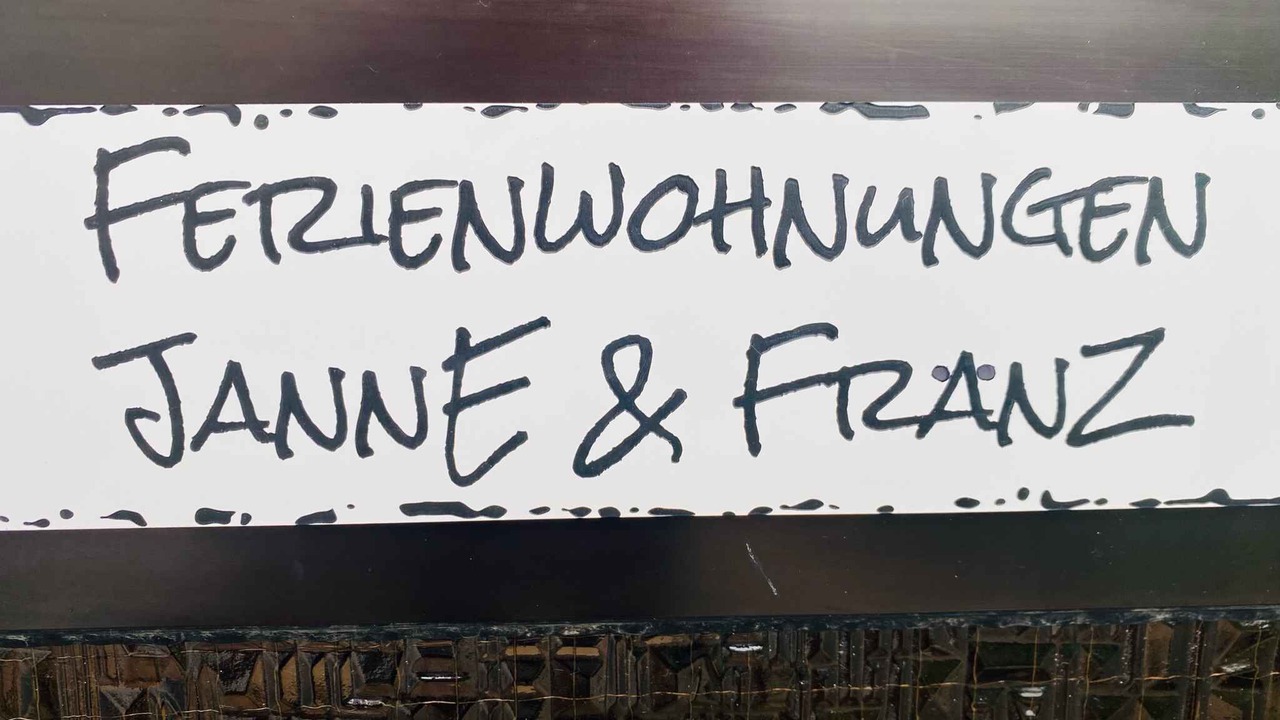 FERIENWOHNUNGEN
JANNE & FRÄNZ